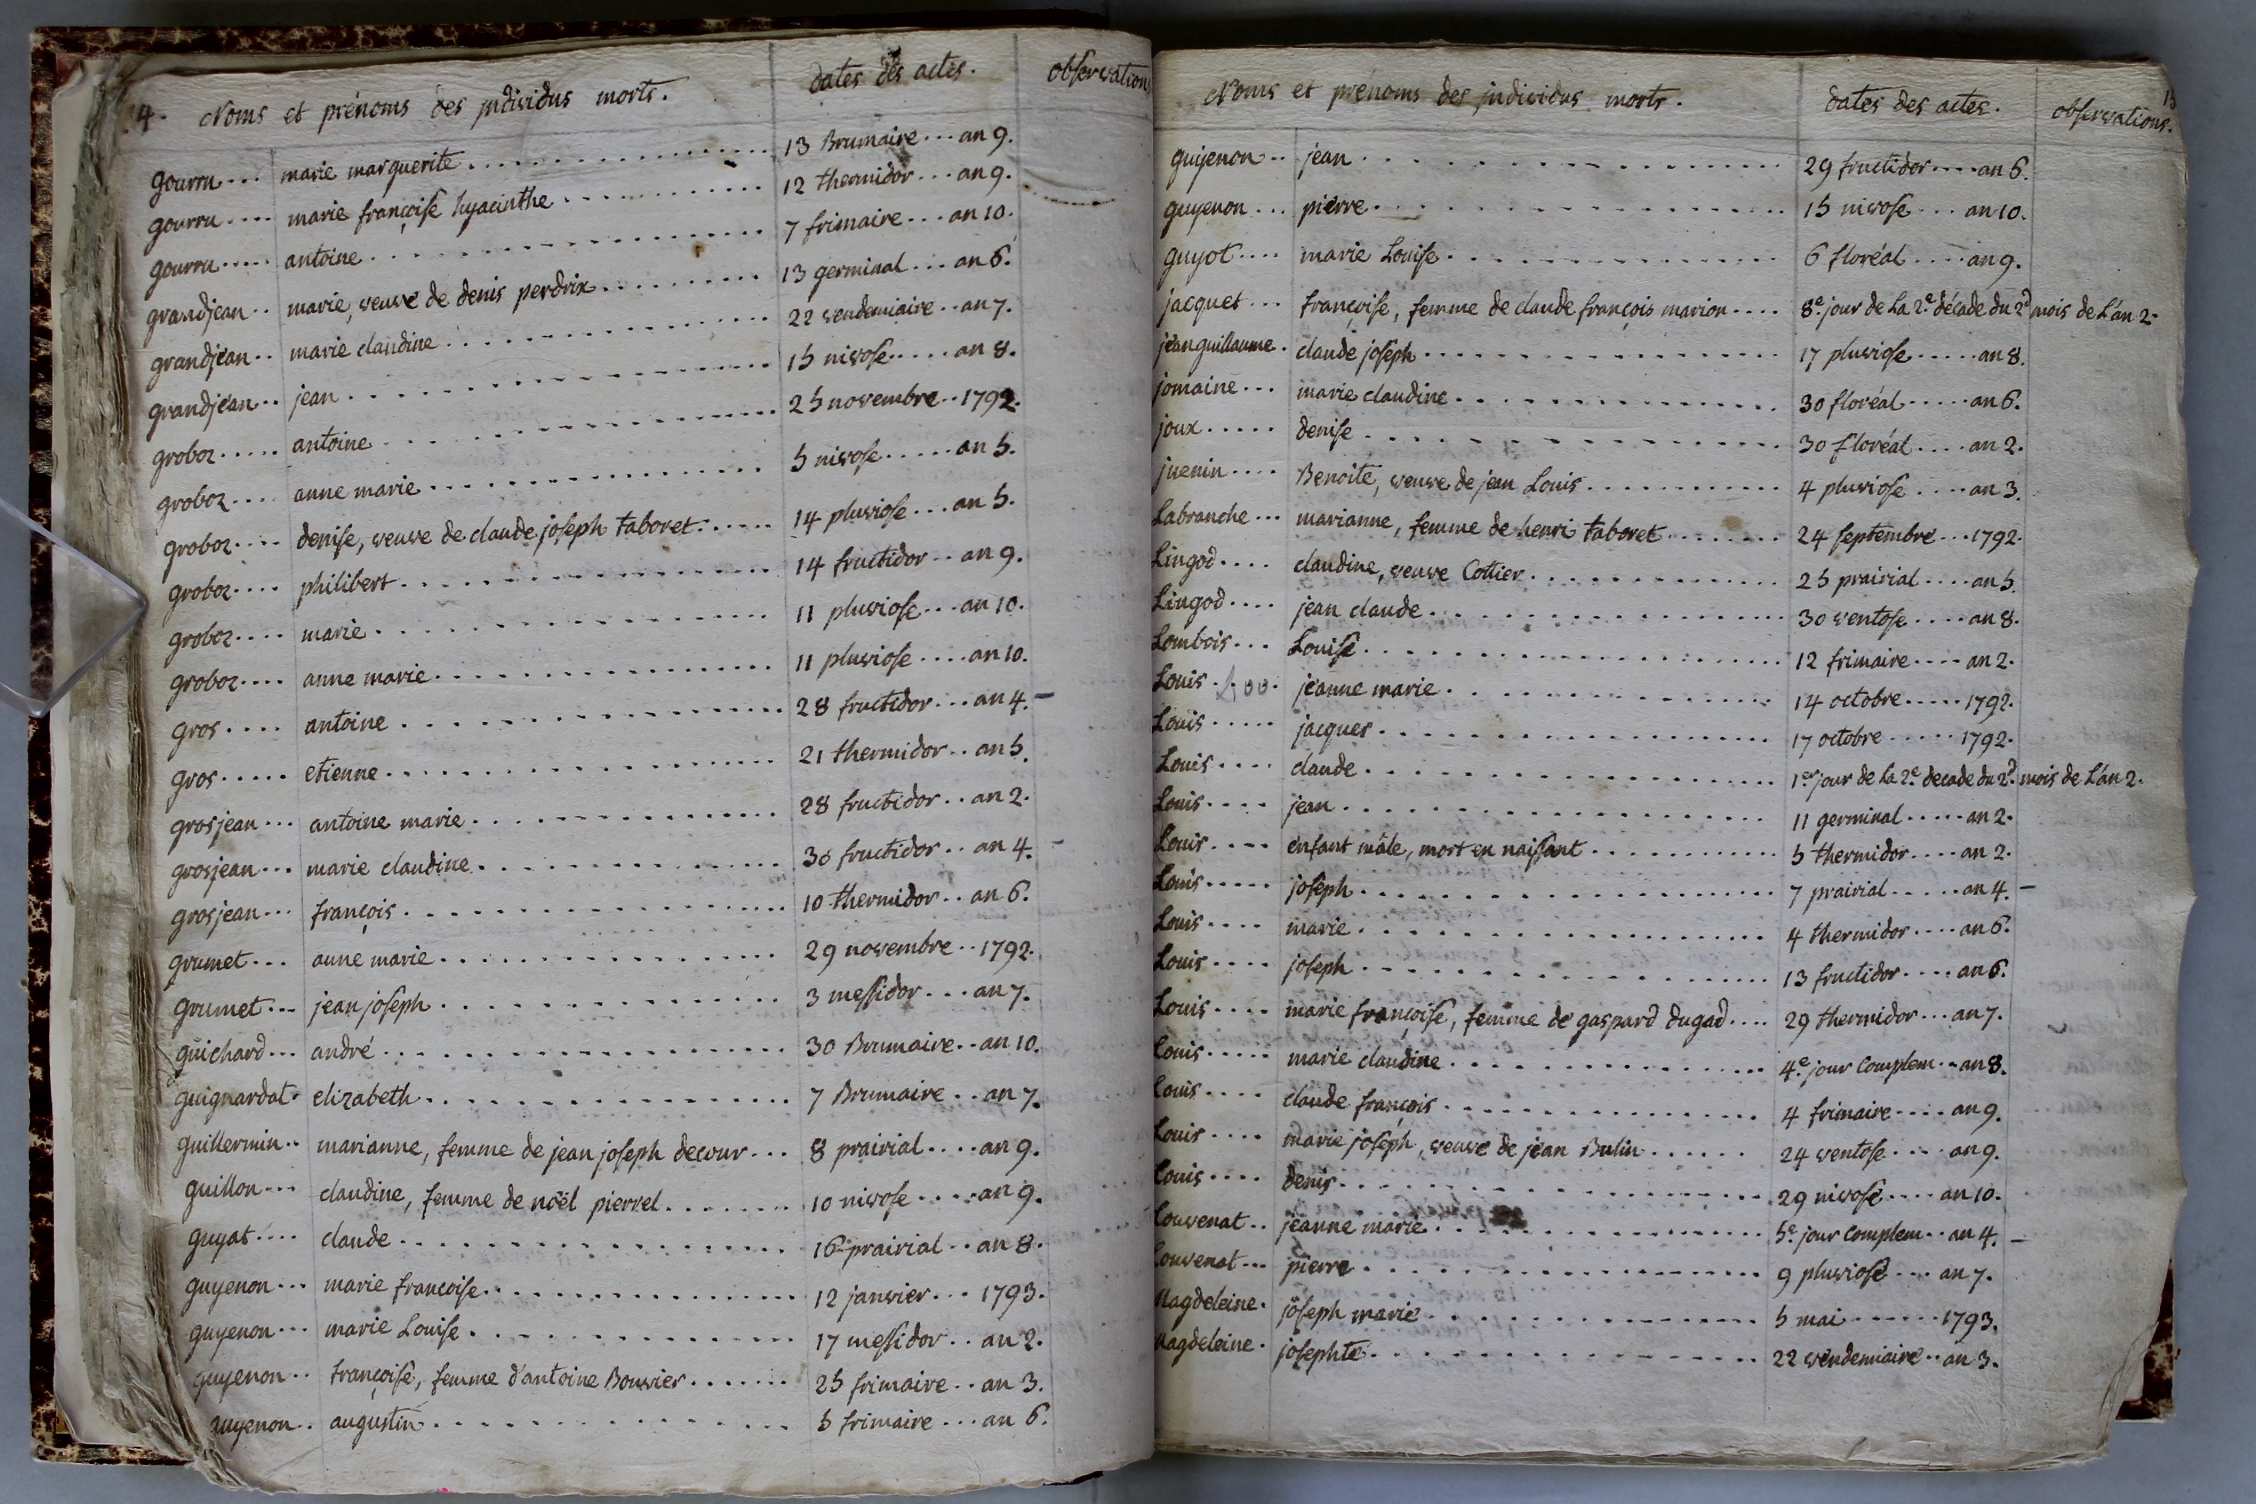 14. Noms et prénoms des jndividus morts. dates des actes. observations
gourru.... marie marguerite.................. 13 Brumaire... an 9.
gourru.... marie françoise hyacinthe........... 12 thermidor... an 9.
gourru..... antoine.................... 7 frimaire... an 10.
grandjean.. marie, veuve de denis perdrix......... 13 germinal... an 6.
grandjean.. marie claudine.................. 22 vendemiaire.. an 7.
grandjean.. jean.................... 15 nivose..... an 8.
groboz..... antoine.................... 25 novembre.. 1792.
groboz.... anne marie.................. 5 nivose...... an 5.
groboz.... denise, veuve de claude joseph taboret...... 14 pluviose... an 5.
groboz.... philibert.................. 14 fructidor.. an 9.
groboz.... marie.................... 11 pluviose... an 10.
groboz.... anne marie.................. 11 pluviose.... an 10.
gros.... antoine.................... 28 fructidor... an 4. -
gros..... etienne.................... 21 thermidor.. an 5.
grosjean... antoine marie................ 28 fructidor.. an 2.
grosjean... marie claudine................ 30 fructidor.. an 4. -
grosjean... françois.................... 10 thermidor.. an 6.
grumet... anne marie.................. 29 novembre.. 1792.
grumet... jean joseph.................. 3 messidor... an 7.
guichard... andré.................... 30 Brumaire.. an 10.
guignardat. elizabeth.................. 7 Brumaire.. an 7.
guillermin.. marianne, femme de jean joseph decour... 8 prairial.... an 9.
guillon... claudine, femme de noël pierrel....... 10 nivose..... an 9.
guyat.... claude.................... 16 prairial.. an 8.
guyenon... marie francoise................ 12 janvier... 1793.
guyenon... marie Louise................ 17 messidor.. an 2.
guyenon.. françoise, femme d'antoine Bouvier....... 25 frimaire.. an 3.
guyenon.. augustin.................. 5 frimaire... an 6.
Noms et prénoms des jndividus morts. dates des actes. observations. 15
guyenon.. jean.................... 29 fructidor.... an 6.
guyenon... pierre.................... 15 nivose... an 10.
guyot.... marie Louise................ 6 floréal.... an 9.
jacquet... françoise, femme de claude françois marion.... 8e. jour de La 2e. décade du 2d mois de L'an 2.
jeanguillaume. claude joseph................ 17 pluviose..... an 8.
jomaine... marie claudine................ 30 floréal..... an 6.
joux..... denise.................... 30 floréal.... an 2.
juenin.... Benoite, veuve de jean Louis........... 4 pluviose.... an 3.
Labranche... marianne, femme de henri taboret........ 24 septembre... 1792.
Lingod.... claudine, veuve Cottier............. 25 prairial.... an 5.
Lingod.... jean claude.................. 30 ventose.... an 8.
Lombois... Louise.................... 12 frimaire.... an 2.
Louis.... jeanne marie.................. 14 octobre..... 1792.
Louis..... jacques.................... 17 octobre...... 1792.
Louis.... claude.................... 1er. jour de La 2e. decade du 2d. mois de L'an 2.
Louis.... jean.................... 11 germinal..... an 2.
Louis.... enfant mâle, mort en naissant........... 5 thermidor.... an 2.
Louis..... joseph.................... 7 prairial...... an 4. -
Louis.... marie.................... 4 thermidor.... an 6.
Louis.... joseph.................... 13 fructidor.... an 6.
Louis.... marie françoise, femme de gaspard dugad.... 29 thermidor... an 7.
Louis..... marie claudine................ 4e. jour Complem.. an 8.
Louis.... claude françois................ 4 frimaire.... an 9.
Louis.... marie joseph, veuve de jean Bulin...... 24 ventose.... an 9.
Louis.... denis.................... 29 nivose.... an 10.
Louvenat.. jeanne marie................ 5e. jour Complem.. an 4. -
Louvenat... pierre.................... 9 pluviose... an 7.
Magdeleine. joseph marie................ 5 mai...... 1793.
Magdeleine. josephte.................. 22 vendemiaire.. an 3.